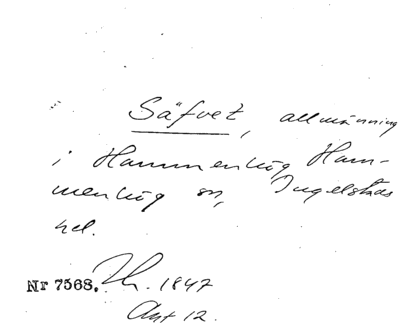 Säfvet, allmänning
i Hammenhög Ham-
menhög sn, Ingelstads
hd.
Nr 7568. Lh. 1847
Akt 12.